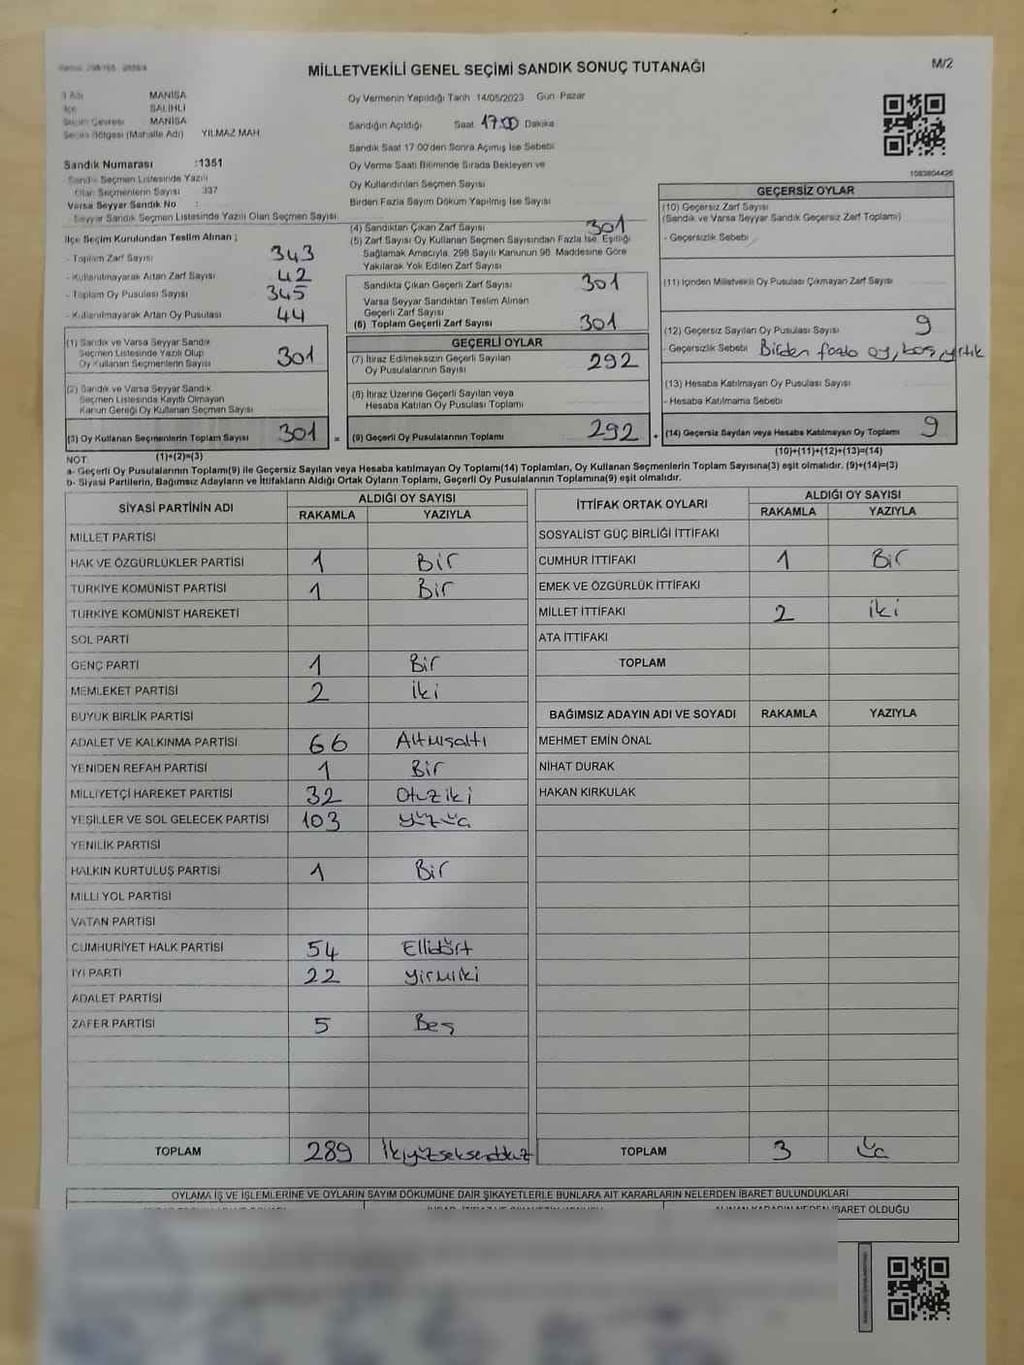 MİLLETVEKİLİ GENEL SEÇİMİ SANDIK SONUÇ TUTANAĞI
M/2
İl Adı MANİSA
İlçe SALİHLİ
Seçim Çevresi MANİSA
Seçim Bölgesi (Mahalle Adı) YILMAZ MAH.
Oy Vermenin Yapıldığı Tarih 14/05/2023 Gün Pazar
Sandığın Açıldığı Saat 17:00 Dakika
Sandık Saat 17:00'den Sonra Açılmış İse Sebebi
Oy Verme Saati Bitiminde Sırada Bekleyen ve
Oy Kullandırılan Seçmen Sayısı
Birden Fazla Sayım Döküm Yapılmış İse Sayısı
1083804426
Sandık Numarası :1351
- Sandık Seçmen Listesinde Yazılı
Olan Seçmenlerin Sayısı 337
Varsa Seyyar Sandık No :
- Seyyar Sandık Seçmen Listesinde Yazılı Olan Seçmen Sayısı
İlçe Seçim Kurulundan Teslim Alınan ;
- Toplam Zarf Sayısı 343
- Kullanılmayarak Artan Zarf Sayısı 42
- Toplam Oy Pusulası Sayısı 345
- Kullanılmayarak Artan Oy Pusulası 44
(1) Sandık ve Varsa Seyyar Sandık
Seçmen Listesinde Yazılı Olup
Oy Kullanan Seçmenlerin Sayısı 301
(2) Sandık ve Varsa Seyyar Sandık
Seçmen Listesinde Kayıtlı Olmayan
Kanun Gereği Oy Kullanan Seçmen Sayısı
(3) Oy Kullanan Seçmenlerin Toplam Sayısı 301 =
(1)+(2)=(3)
(4) Sandıktan Çıkan Zarf Sayısı 301
(5) Zarf Sayısı Oy Kullanan Seçmen Sayısından Fazla İse, Eşitliği
Sağlamak Amacıyla, 298 Sayılı Kanunun 98. Maddesine Göre
Yakılarak Yok Edilen Zarf Sayısı
Sandıkta Çıkan Geçerli Zarf Sayısı 301
Varsa Seyyar Sandıktan Teslim Alınan
Geçerli Zarf Sayısı
(6) Toplam Geçerli Zarf Sayısı 301
GEÇERLİ OYLAR
(7) İtiraz Edilmeksizin Geçerli Sayılan
Oy Pusulalarının Sayısı 292
(8) İtiraz Üzerine Geçerli Sayılan veya
Hesaba Katılan Oy Pusulası Toplamı
(9) Geçerli Oy Pusulalarının Toplamı 292 +
GEÇERSİZ OYLAR
(10) Geçersiz Zarf Sayısı
(Sandık ve Varsa Seyyar Sandık Geçersiz Zarf Toplamı)
- Geçersizlik Sebebi
(11) İçinden Milletvekili Oy Pusulası Çıkmayan Zarf Sayısı
(12) Geçersiz Sayılan Oy Pusulası Sayısı 9
- Geçersizlik Sebebi Birden fazla oy, boş, yırtık
(13) Hesaba Katılmayan Oy Pusulası Sayısı
- Hesaba Katılmama Sebebi
(14) Geçersiz Sayılan veya Hesaba Katılmayan Oy Toplamı 9
(10)+(11)+(12)+(13)=(14)
NOT:
a- Geçerli Oy Pusulalarının Toplamı(9) ile Geçersiz Sayılan veya Hesaba katılmayan Oy Toplamı(14) Toplamları, Oy Kullanan Seçmenlerin Toplam Sayısına(3) eşit olmalıdır. (9)+(14)=(3)
b- Siyasi Partilerin, Bağımsız Adayların ve İttifakların Aldığı Ortak Oyların Toplamı, Geçerli Oy Pusulalarının Toplamına(9) eşit olmalıdır.
SİYASİ PARTİNİN ADI ALDIĞI OY SAYISI
RAKAMLA YAZIYLA
MİLLET PARTİSİ
HAK VE ÖZGÜRLÜKLER PARTİSİ 1 Bir
TÜRKİYE KOMÜNİST PARTİSİ 1 Bir
TÜRKİYE KOMÜNİST HAREKETİ
SOL PARTİ
GENÇ PARTİ 1 Bir
MEMLEKET PARTİSİ 2 iki
BÜYÜK BİRLİK PARTİSİ
ADALET VE KALKINMA PARTİSİ 66 Altmışaltı
YENİDEN REFAH PARTİSİ 1 Bir
MİLLİYETÇİ HAREKET PARTİSİ 32 Otuziki
YEŞİLLER VE SOL GELECEK PARTİSİ 103 yüzüç
YENİLİK PARTİSİ
HALKIN KURTULUŞ PARTİSİ 1 Bir
MİLLİ YOL PARTİSİ
VATAN PARTİSİ
CUMHURİYET HALK PARTİSİ 54 Ellidört
İYİ PARTİ 22 yirmiiki
ADALET PARTİSİ
ZAFER PARTİSİ 5 Beş
TOPLAM 289 İkiyüzseksendokuz
İTTİFAK ORTAK OYLARI ALDIĞI OY SAYISI
RAKAMLA YAZIYLA
SOSYALİST GÜÇ BİRLİĞİ İTTİFAKI
CUMHUR İTTİFAKI 1 Bir
EMEK VE ÖZGÜRLÜK İTTİFAKI
MİLLET İTTİFAKI 2 iki
ATA İTTİFAKI
TOPLAM
BAĞIMSIZ ADAYIN ADI VE SOYADI RAKAMLA YAZIYLA
MEHMET EMİN ÖNAL
NİHAT DURAK
HAKAN KIRKULAK
TOPLAM 3 Üç
OYLAMA İŞ VE İŞLEMLERİNE VE OYLARIN SAYIM DÖKÜMÜNE DAİR ŞİKAYETLERLE BUNLARA AİT KARARLARIN NELERDEN İBARET BULUNDUKLARI
ALINAN KARARIN NEDEN İBARET OLDUĞU